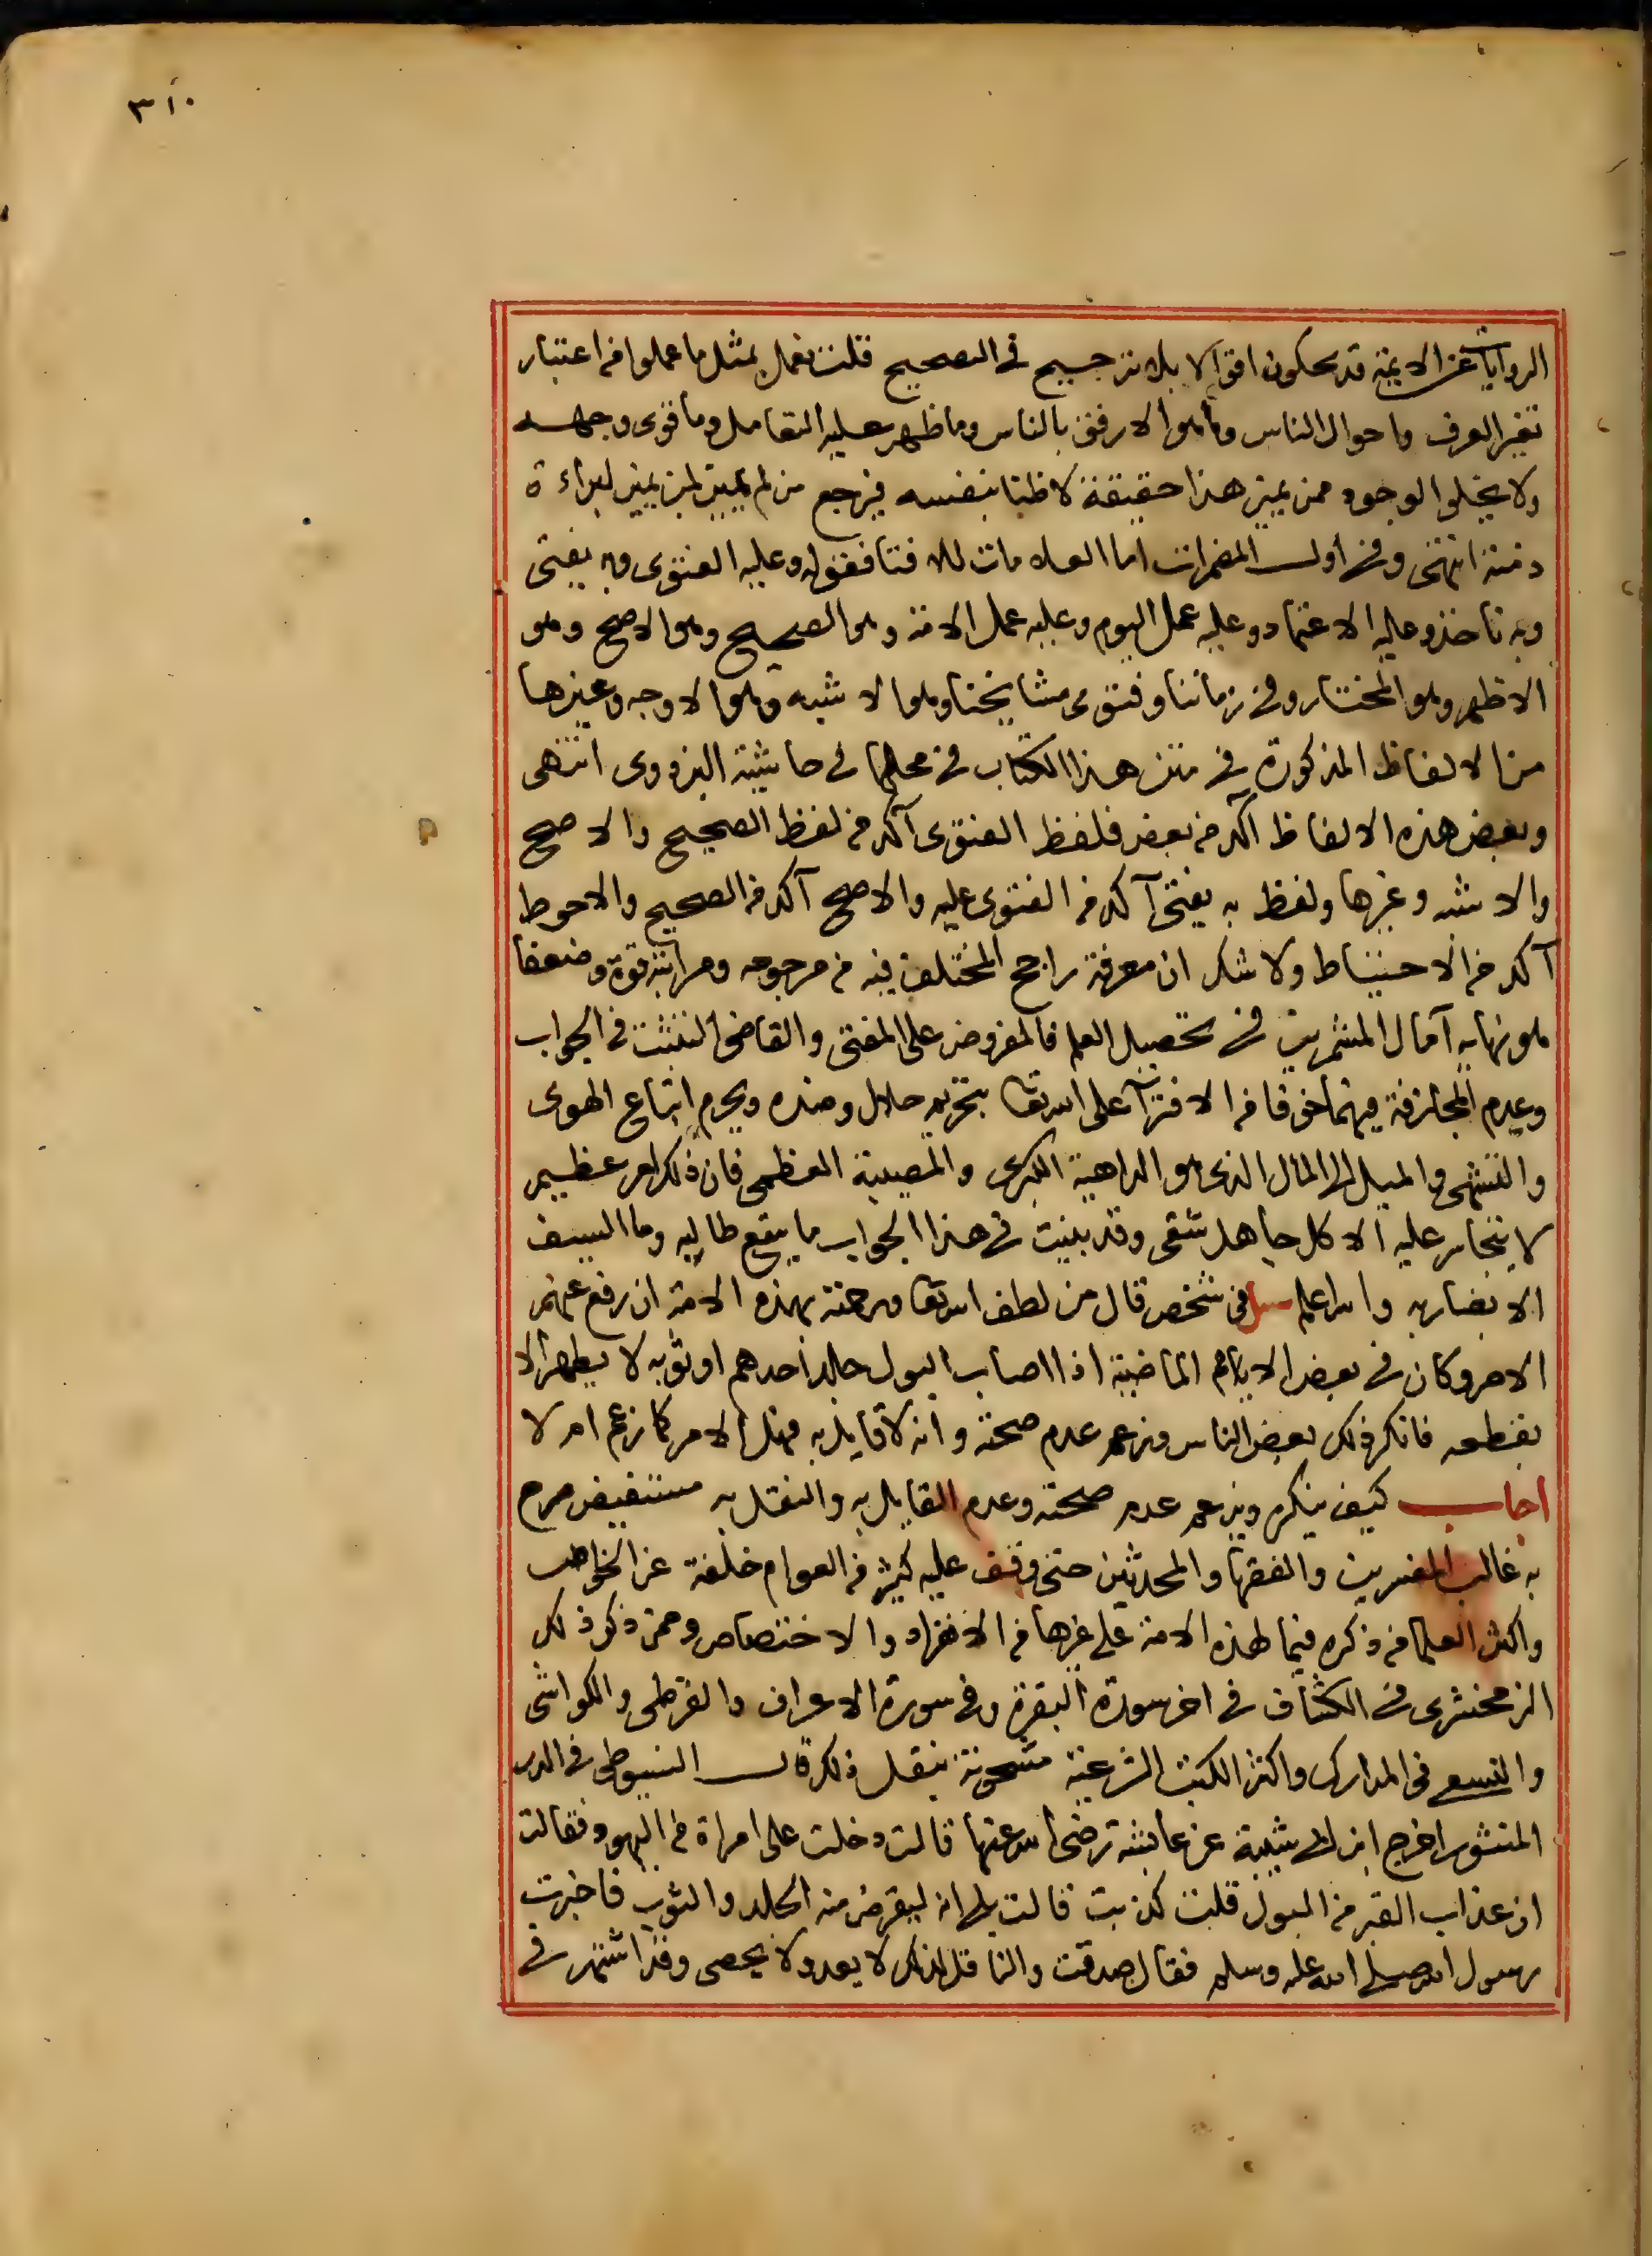 ٣١٠
الروايات عن الايمة قد يحكون اقوالا بلا ترجيح في التصحيح قلت نعمل بمثل ما عملوا من اعتبار
تغير العرف واحوال الناس وما هو الارفق بالناس وما ظهر عليه التعامل وما قوى وجهه
ولا يخلوا الوجود ممن يميز هذا حقيقة لا ظنا بنفسه فيرجع من لم يميز لمن يميز لبراءة
ذمته انتهى وفى اول المضمرات اما العلامات للافتا فقوله وعليه الفتوى وبه يفتى
وبه ناخذ وعليه الاعتماد وعليه عمل اليوم وعليه عمل الامة وهو الصحيح وهو الاصح وهو
الاظهر وهو المختار وفى زماننا وفتوى مشايخنا وهو الاشبه وهو الاوجه وغيرها
من الالفاظ المذكورة في متن هذا الكتاب في محلها في حاشية البزدوى انتهى
وبعض هذه الالفاظ آكد من بعض فلفظ الفتوى آكد من لفظ الصحيح والاصح
والاشبه وغيرها ولفظ به يفتى آكد من الفتوى عليه والاصح آكد من الصحيح والاحوط
آكد من الاحتياط ولا شك ان معرفة راجح المختلف فيه من مرجوحه ومراتبه قوة وضعفا
هو نهاية آمال المشمرين في تحصيل العلم فالمفروض على المفتى والقاضى التثبت في الجواب
وعدم المجازفة فيهما خوفا من الافترآ على الله تعا بتحريم حلال وضده ويحرم اتباع الهوى
والتشهى والميل الى المال الذى هو الداهية الكبرى والمصيبة العظمى فان ذلك امر عظيم
لا يتجاسر عليه الا كل جاهل شقى وقد بينت في هذا الجواب ما ينفع طالبه وما السيف
الا بضاربه والله اعلم سئل في شخص قال من لطف الله تعا ورحمته بهذه الامة ان رفع عنهم
الاصر وكان في بعض الايام الماضية اذا اصاب البول جلد احدهم او ثوبه لا يطهر الا
بقطعه فانكر ذلك بعض الناس وزعم عدم صحته وانه لا قايل به فهل الامر كما زعم ام لا
اجاب كيف ينكر ويزعم عدم صحته وعدم القايل به والنقل به مستفيض صرح
به غالب المفسرين والفقها والمحدثين حتى وقف عليه كثير من العوام خلفة عن الخواص
واكثر العلما من ذكره فيما لهذه الامة على غيرها من الانفراد والاختصاص وممن ذكر ذلك
الزمخشرى في الكشاف في اخر سورة البقرة وفى سورة الاعراف والقرطبى والكواشى
والنسفى في المدارك واكثر الكتب الشرعية مشحونة بنقل ذلك قال السيوطى في الدر
المنثور اخرج ابن ابى شيبة عن عايشة رضى الله عنها قالت دخلت على امراة من اليهود فقالت
ان عذاب القبر من البول قلت كذبت قالت بلى انه ليقرض منه الجلد والثوب فاخبرت
رسول الله صلى الله عليه وسلم فقال صدقت والناقل لذلك لا يعد ولا يحصى وقد اشتهر في